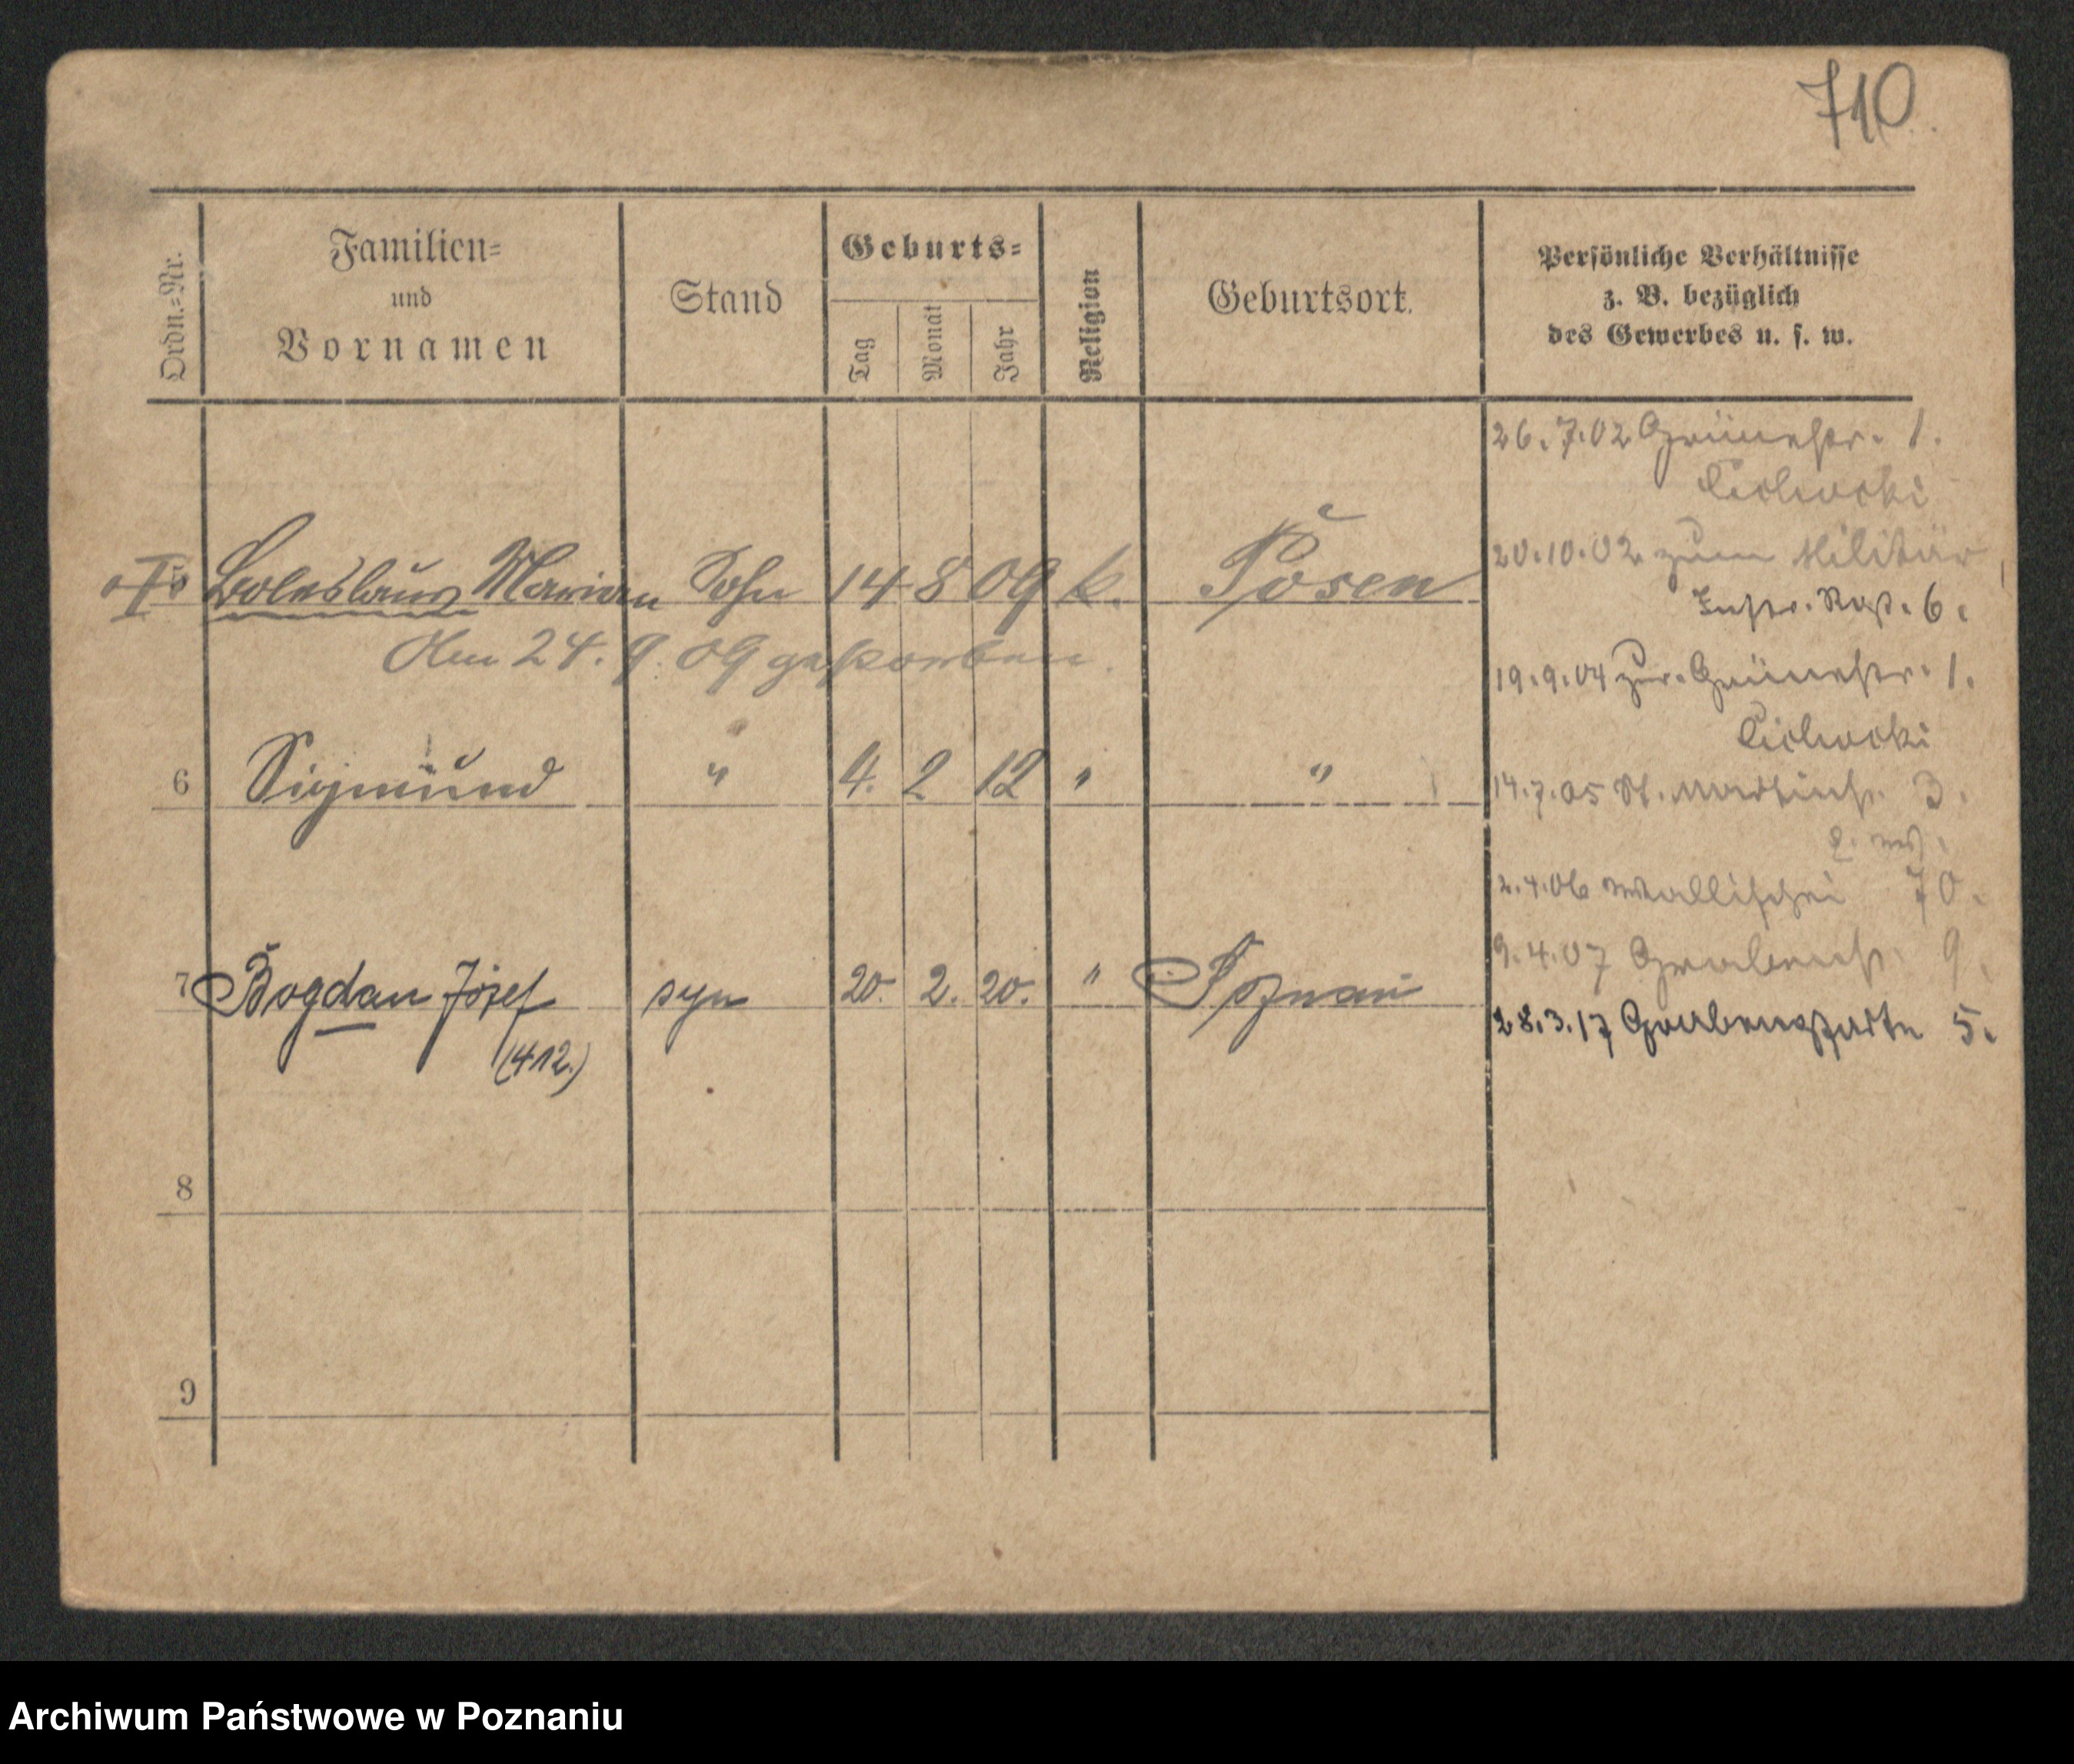 710.
Ordn.=Nr.
Familien=
und
Vornamen
Stand
Geburts=
Tag
Monat
Jahr
Religion
Geburtsort.
Persönliche Verhältnisse
z. B. bezüglich
des Gewerbes u. s. w.
Boleslaus Marian Sohn 14 8 09 k. Posen
Am 24. 9. 09 gestorben.
6 Sigmund " 4. 2 12 " "
7 Bogdan Józef syn 20. 2. 20. " Poznań
(412.)
8
9
26.7.02 Grünestr. 1.
20.10.02 zum Militär
Inftr. Rgt. 6.
19.9.04 zur. Grünestr. 1.
14.7.05 St. Martinstr. 3.
2.4.06 Wallischei 70.
9.4.07 Grabenstr. 9.
28.3.17 Grabenstr. 5.
Archiwum Państwowe w Poznaniu